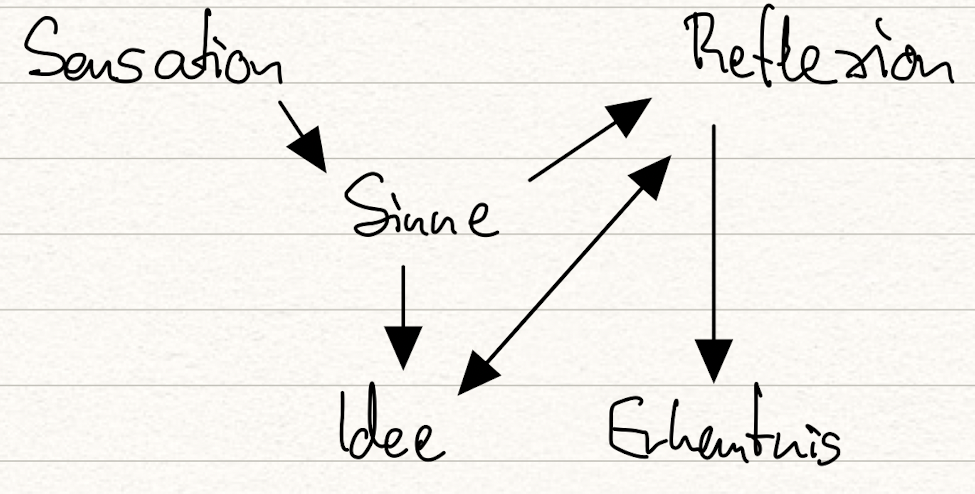 Sensation Reflexion
Sinne
Idee Erkenntnis